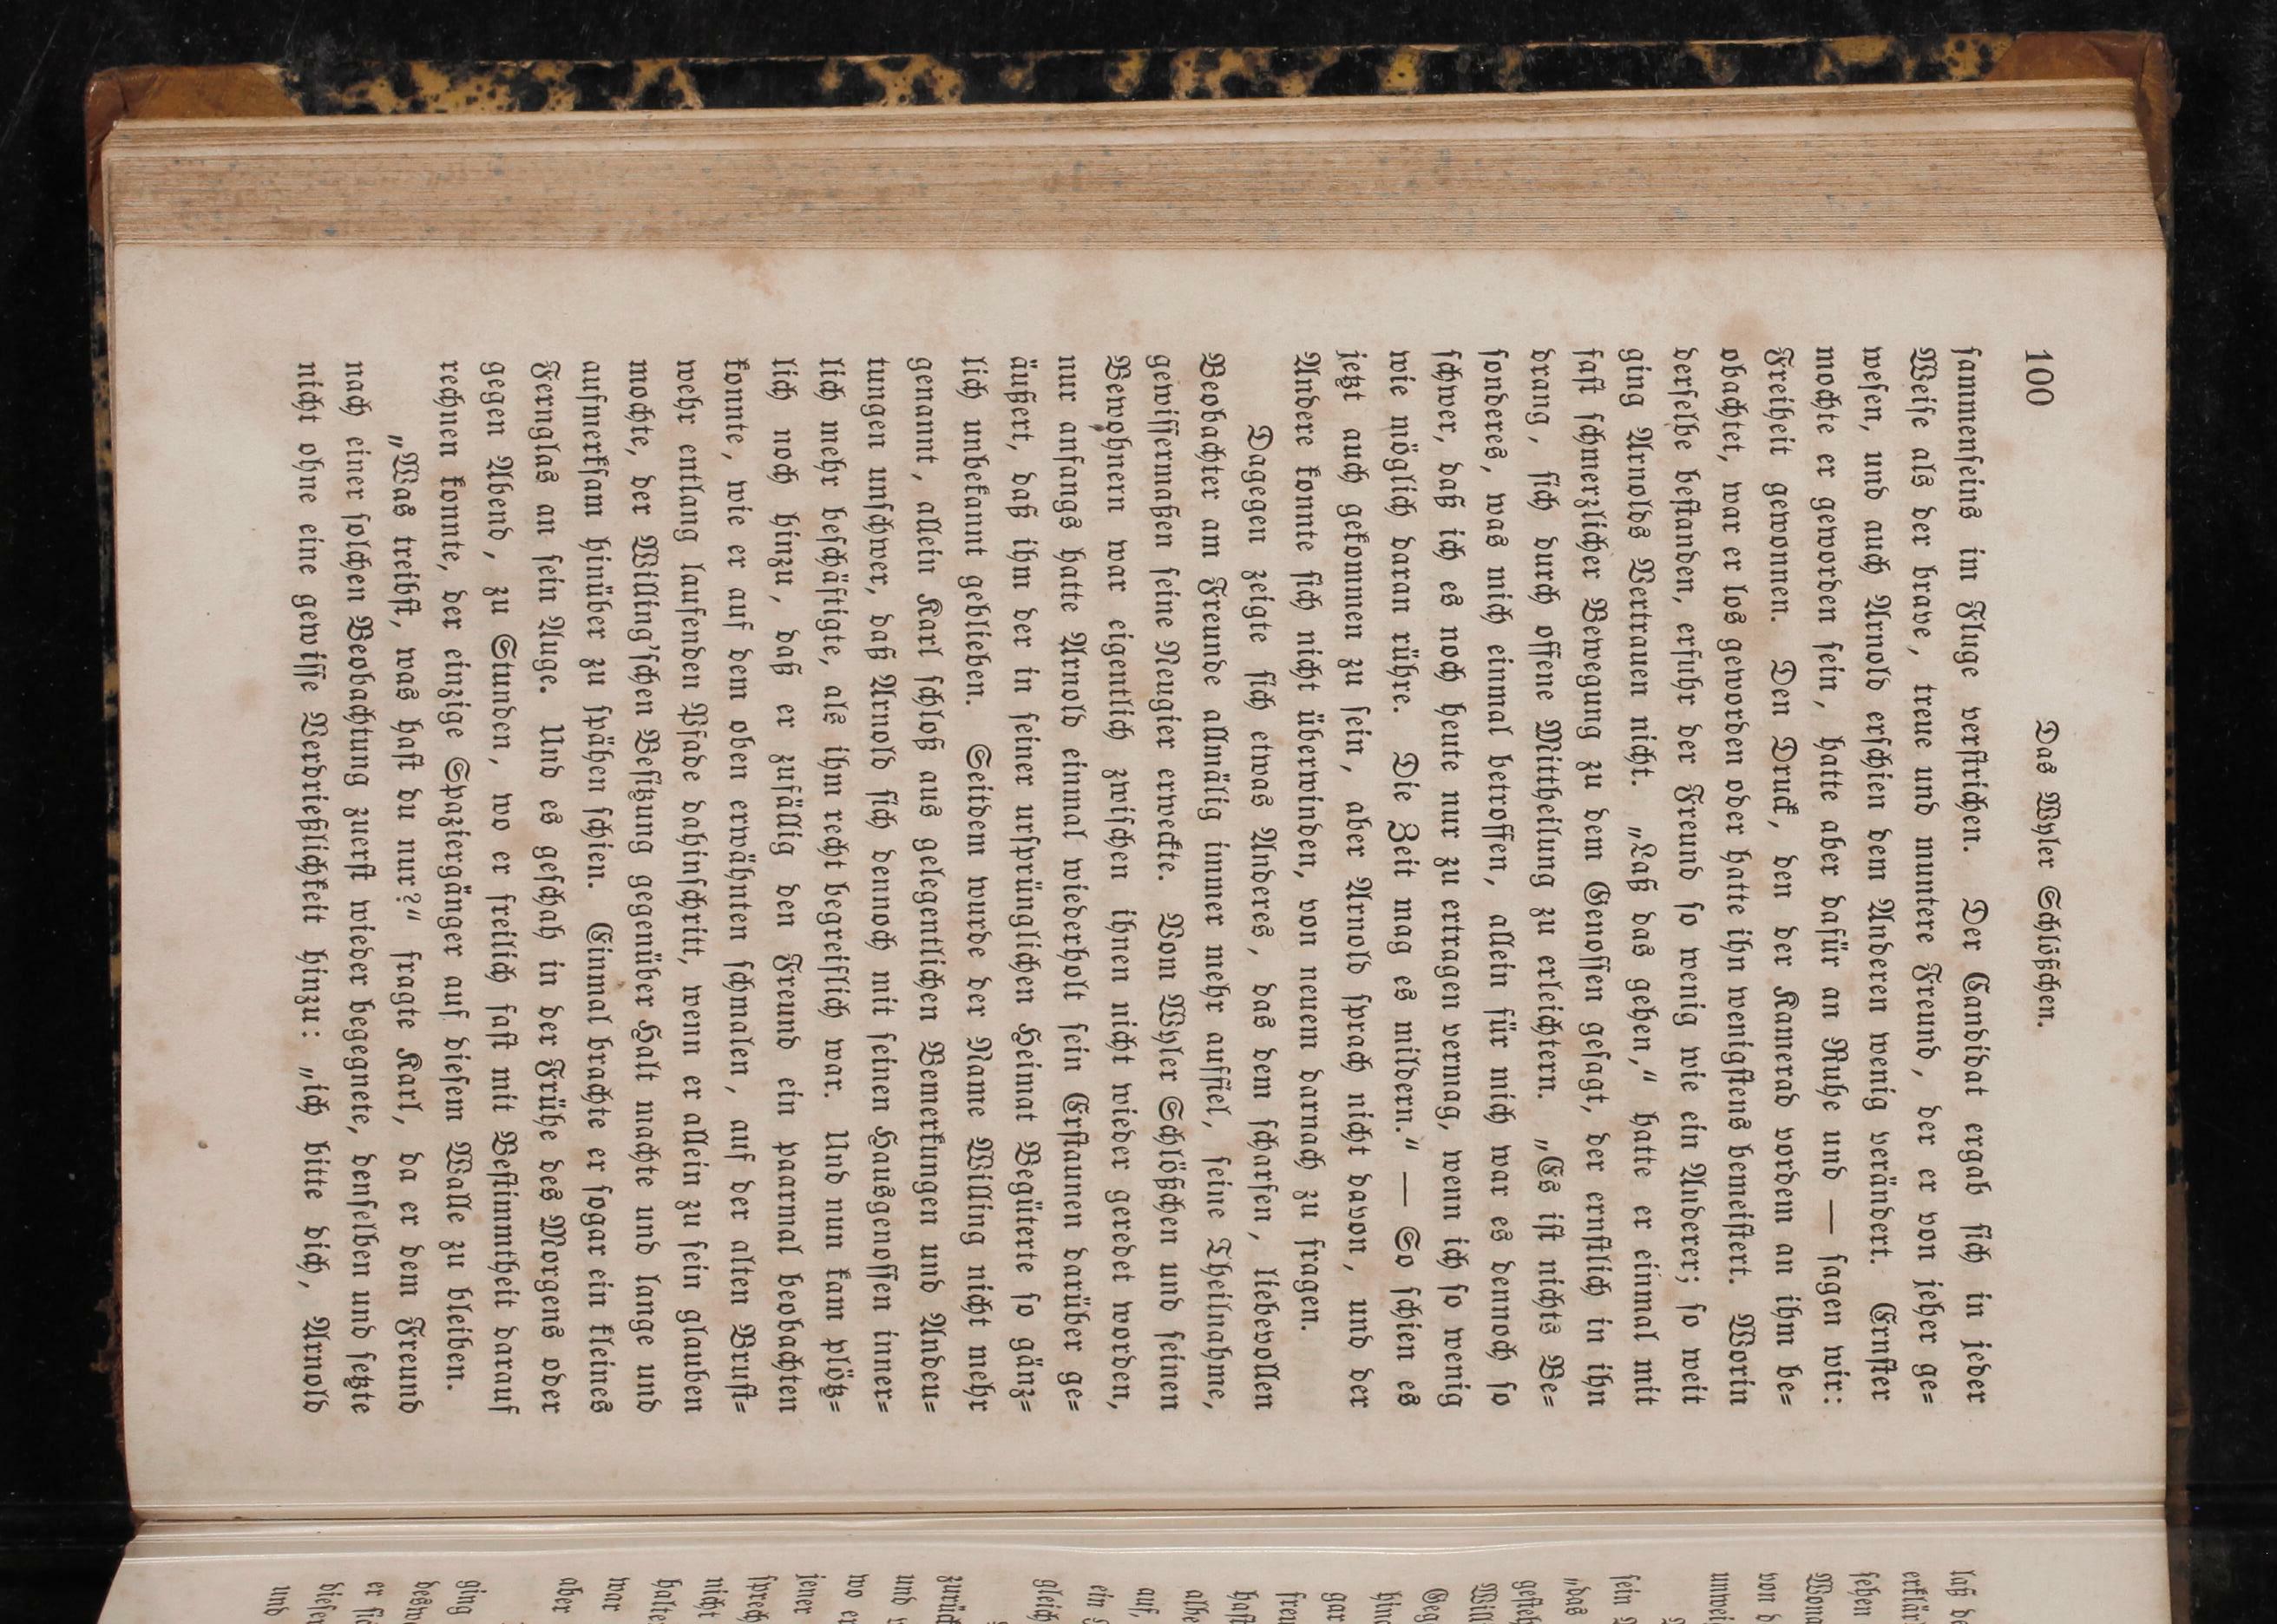 100 Das Wyler Schlößchen.
sammenseins im Fluge verstrichen. Der Candidat ergab sich in jeder
Weise als der brave, treue und muntere Freund, der er von jeher ge=
wesen, und auch Arnold erschien dem Anderen wenig verändert. Ernster
mochte er geworden sein, hatte aber dafür an Ruhe und — sagen wir:
Freiheit gewonnen. Den Druck, den der Kamerad vordem an ihm be=
obachtet, war er los geworden oder hatte ihn wenigstens bemeistert. Worin
derselbe bestanden, erfuhr der Freund so wenig wie ein Anderer; so weit
ging Arnolds Vertrauen nicht. „Laß das gehen,“ hatte er einmal mit
fast schmerzlicher Bewegung zu dem Genossen gesagt, der ernstlich in ihn
drang, sich durch offene Mittheilung zu erleichtern. „Es ist nichts Be=
sonderes, was mich einmal betroffen, allein für mich war es dennoch so
schwer, daß ich es noch heute nur zu ertragen vermag, wenn ich so wenig
wie möglich daran rühre. Die Zeit mag es mildern.“ — So schien es
jetzt auch gekommen zu sein, aber Arnold sprach nicht davon, und der
Andere konnte sich nicht überwinden, von neuem darnach zu fragen.
Dagegen zeigte sich etwas Anderes, das dem scharfen, liebevollen
Beobachter am Freunde allmälig immer mehr auffiel, seine Theilnahme,
gewissermaßen seine Neugier erweckte. Vom Wyler Schlößchen und seinen
Bewohnern war eigentlich zwischen ihnen nicht wieder geredet worden,
nur anfangs hatte Arnold einmal wiederholt sein Erstaunen darüber ge=
äußert, daß ihm der in seiner ursprünglichen Heimat Begüterte so gänz=
lich unbekannt geblieben. Seitdem wurde der Name Willing nicht mehr
genannt, allein Karl schloß aus gelegentlichen Bemerkungen und Anden=
tungen unschwer, daß Arnold sich dennoch mit seinen Hausgenossen inner=
lich mehr beschäftigte, als ihm recht begreiflich war. Und nun kam plötz=
lich noch hinzu, daß er zufällig den Freund ein paarmal beobachten
konnte, wie er auf dem oben erwähnten schmalen, auf der alten Brust=
wehr entlang laufenden Pfade dahinschritt, wenn er allein zu sein glauben
mochte, der Willing'schen Besitzung gegenüber Halt machte und lange und
aufmerksam hinüber zu spähen schien. Einmal brachte er sogar ein kleines
Fernglas an sein Auge. Und es geschah in der Frühe des Morgens oder
gegen Abend, zu Stunden, wo er freilich fast mit Bestimmtheit darauf
rechnen konnte, der einzige Spaziergänger auf diesem Walle zu bleiben.
„Was treibst, was hast du nur?“ fragte Karl, da er dem Freund
nach einer solchen Beobachtung zuerst wieder begegnete, denselben und setzte
nicht ohne eine gewisse Verdrießlichkeit hinzu: „ich bitte dich, Arnold